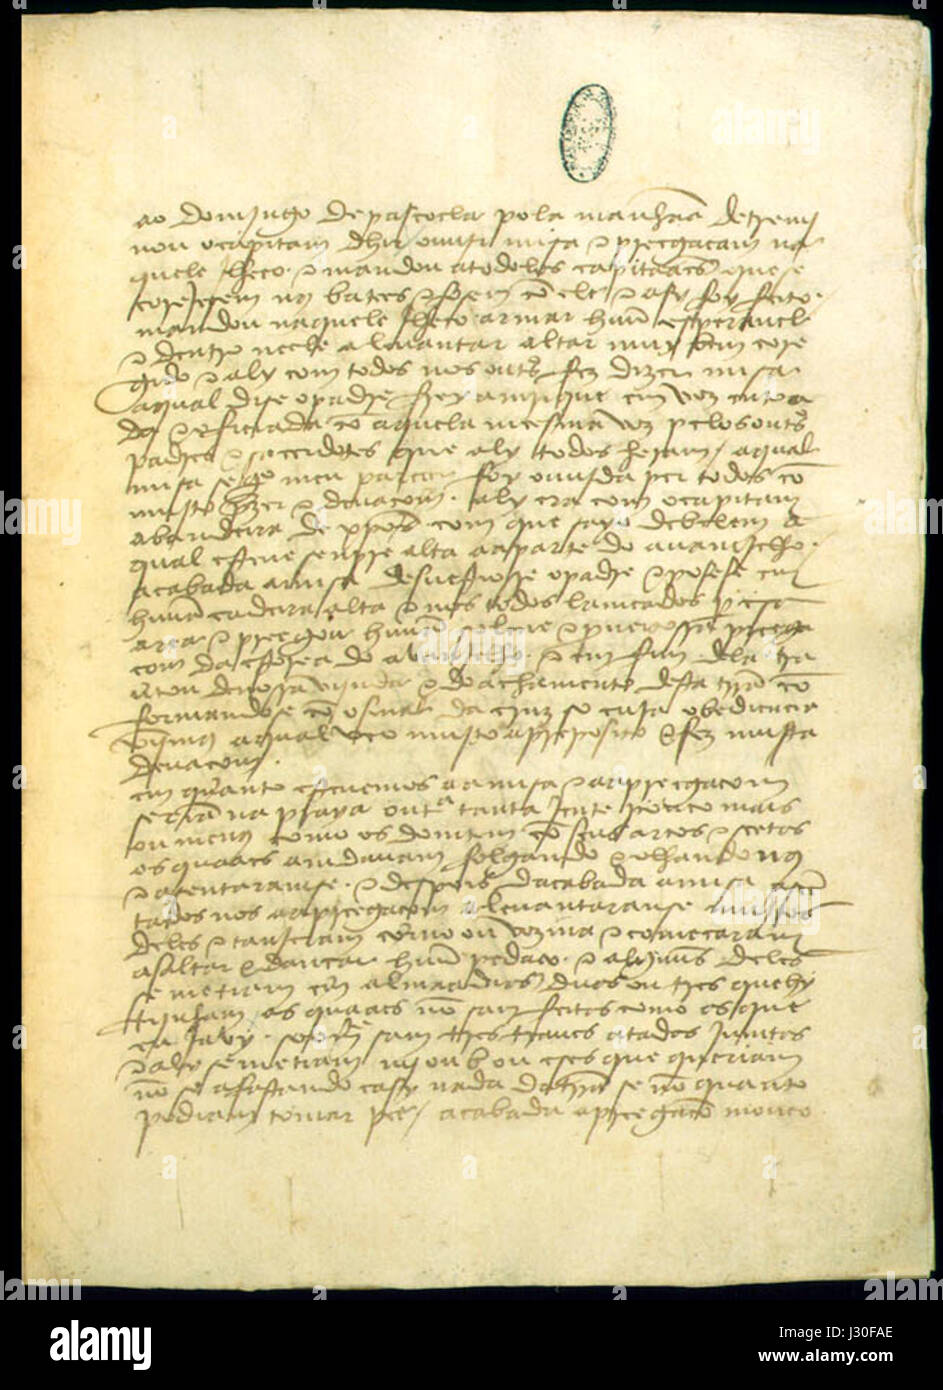 ao domjngo de pascoela pola manhaã detremj
nou ocapitam dhir ouuir misa e preegaçam na
quele jlheo. e mandou a todolos capitaães que se
corejesem nos batees e fosem cõ ele e asy foy feito.
mandou naquele jlheo armar huũ esperauel
e dentro neele aleuantar altar muy bem core
gido e aly com todos nos outros fez dizer misa
aqual dise opadre frey amrique em voz entoa
da e oficiada cõ aquela meesma voz pelos outros
padres e sacerdotes que aly todos heram / aqual
misa sego meu parecer foy ouujda per todos cõ
mujto prazer e deuaçom. aly era com ocapitam
abandeira de xpos com que sayo debelem a
qual esteue senpre alta aaparte do auanjelho.
acabada amisa desuestiose opadre e posese em
huũa cadeira alta e nos todos lamçados per esa
area e preegou huũa solene e proueitosa preega
com da estorea do auanjelho. e em fim dela tra
utou de nosa vijnda e do achamento desta trra cõ
formandose cõ osinal da cruz so cuja obediençia
vijmos aqual veo mujto apreposito e fez mujta
deuaçom.
em quanto esteuemos aamisa e aapreegaçom
seriã na praya outa tanta jente pouco mais
ou menos como os domtem cõ seus arcos e seetas
os quaaes amdauam folgando e olhandonos
e asentaramse. e despois dacabada amisa asem
tados nos aapregaçom aleuantaranse mujtos
deles e tanjeram corno ou vozina e começaram
asaltar e dançar huũ pedaço. e alguũs deles
se metiam em almaadias duas ou tres que hy
tijnham as quaaes nõ sam feitas como as que
eu ja vy. soomte sam tres traues atadas juntas
e aly se metiam iiij ou b ou eses que queriam
nõ se afastando casy nada da trra se nõ quanto
podiam tomar pee / acabada a preegaçõ moueo
alamy
a
Image ID: J30FAE
www.alamy.com